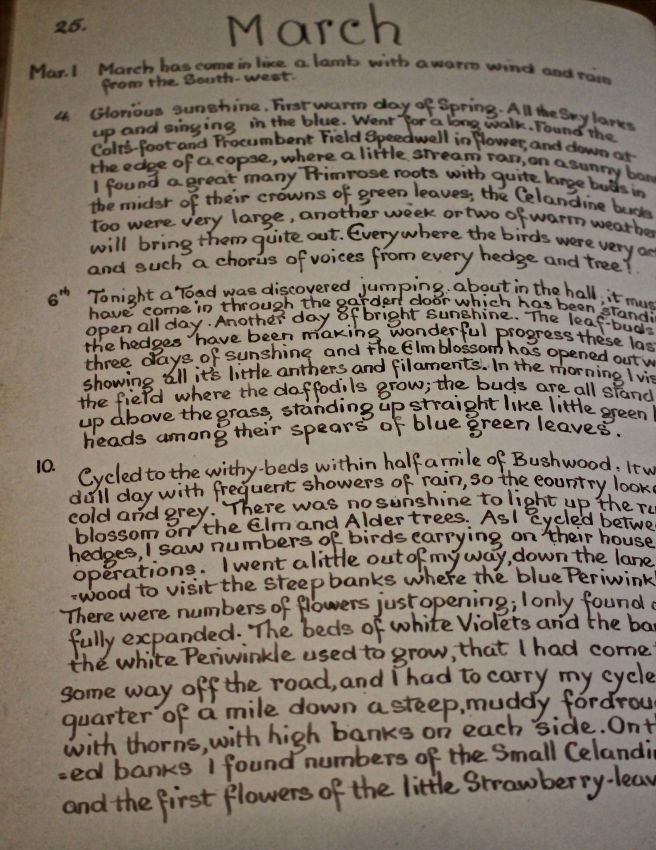 25.
March
Mar. 1 March has come in like a lamb with a warm wind and rain
from the South-west.
4 Glorious sunshine. First warm day of Spring. All the Sky larks
up and singing in the blue. Went for a long walk. Found the
Colts-foot and Procumbent Field Speedwell in flower, and down at
the edge of a copse, where a little stream ran, on a sunny
I found a great many Primrose roots with quite large buds in
the midst of their crowns of green leaves; the Celandine buds
too were very large, another week or two of warm weather
will bring them quite out. Everywhere the birds were very
and such a chorus of voices from every hedge and tree!
6th Tonight a Toad was discovered jumping about in the hall, it
have come in through the garden door which has been
open all day. Another day of bright sunshine. The leaf-buds
the hedges have been making wonderful progress these
three days of sunshine and the Elm blossom has opened out
showing all it's little anthers and filaments. In the morning I
the field where the daffodils grow; the buds are all
up above the grass, standing up straight like little green
heads among their spears of blue green leaves.
10. Cycled to the withy-beds within half a mile of Bushwood. It
dull day with frequent showers of rain, so the country
cold and grey. There was no sunshine to light up the
blossom on the Elm and Alder trees. As I cycled
hedges, I saw numbers of birds carrying on their house
operations. I went a little out of my way, down the lane
-wood to visit the steep banks where the blue
There were numbers of flowers just opening; I only found
fully expanded. The beds of white Violets and the
the white Periwinkle used to grow, that I had come
some way off the road, and I had to carry my cycle
quarter of a mile down a steep, muddy
with thorns, with high banks on each side. On
-ed banks I found numbers of the Small
and the first flowers of the little